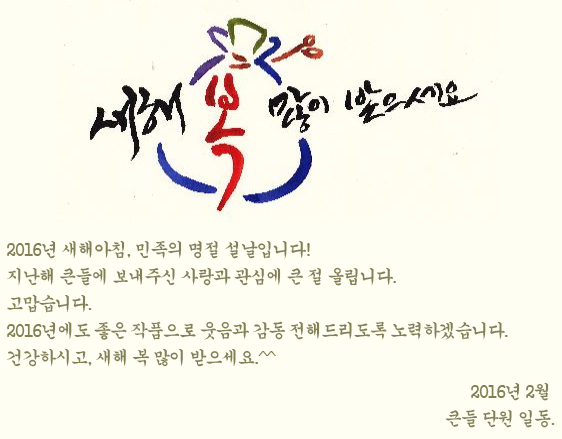 새해 복 많이 받으세요
2016년 새해아침, 민족의 명절 설날입니다!
지난해 큰들에 보내주신 사랑과 관심에 큰 절 올립니다.
고맙습니다.
2016년에도 좋은 작품으로 웃음과 감동 전해드리도록 노력하겠습니다.
건강하시고, 새해 복 많이 받으세요.^^
2016년 2월
큰들 단원 일동.